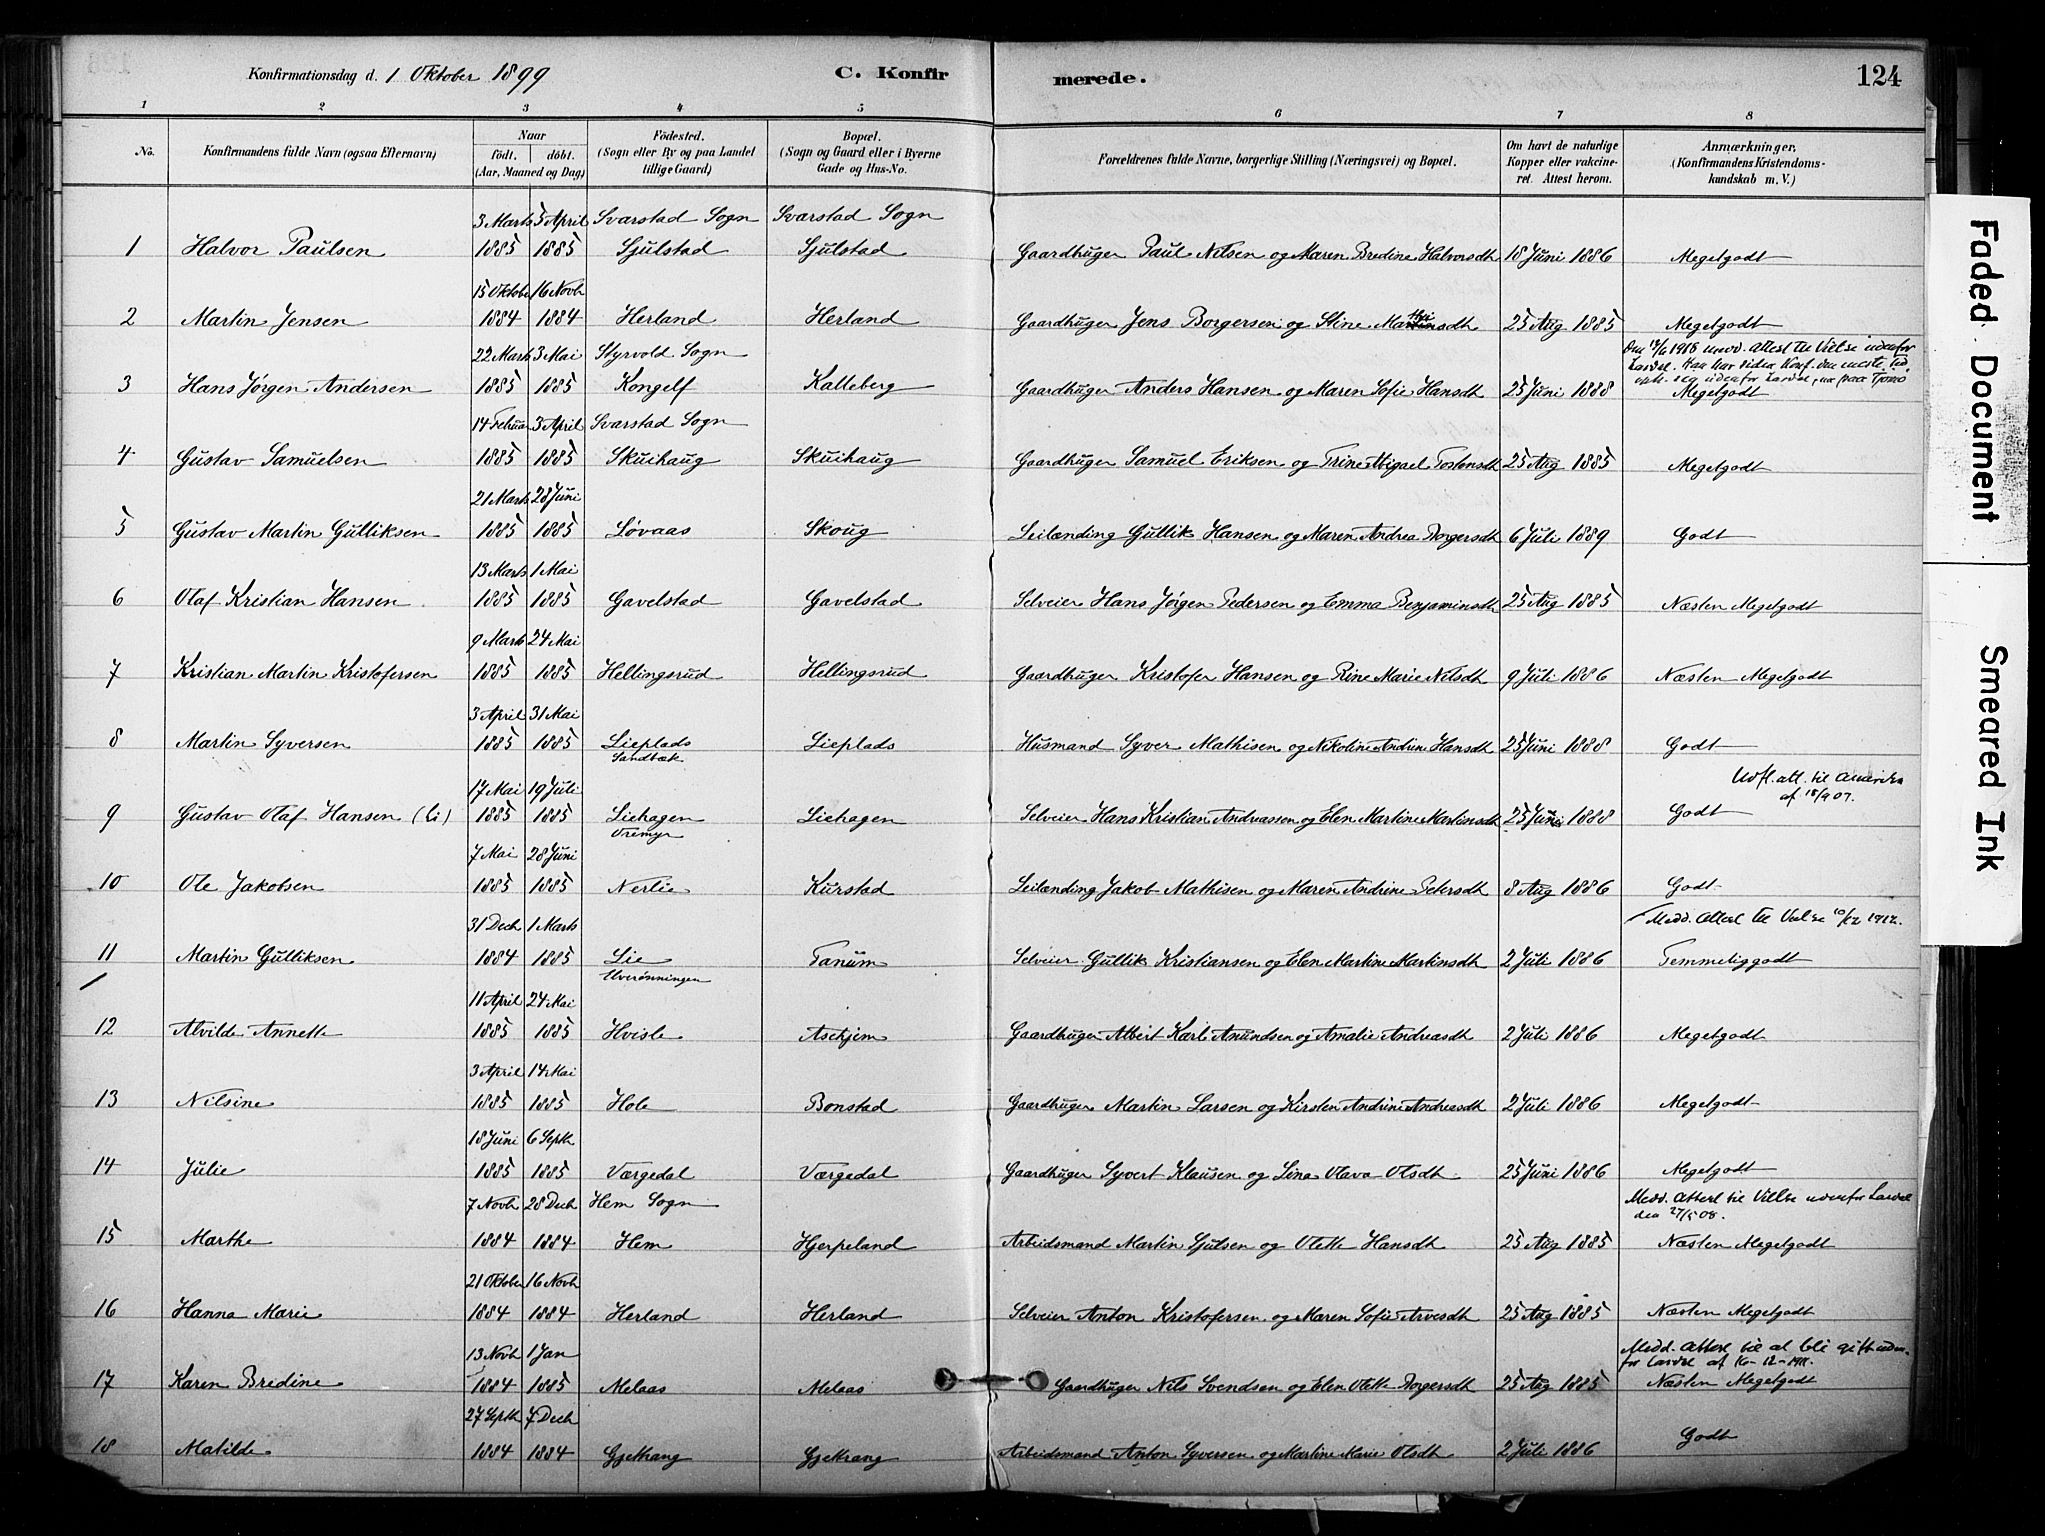 Konfirmationsdag d. 1 Oktober 1899 C. Konfir merede. 124
1 2 3 4 5 6 7 8
No. Konfirmandens fulde Navn (ogsaa Efternavn) Naar födt. döbt. (Aar, Maaned og Dag) Födested. (Sogn eller By og paa Landet tillige Gaard) Bopæl. (Sogn og Gaard eller i Byerne Gade og Hus-No. Forældrenes fulde Navne, borgerlige Stilling (Næringsvei) og Bopæl. Om havt de naturlige Kopper eller vakcineret. Attest herom. Anmærkninger. (Konfirmandens Kristendomskundskab m. V.)
3 Marts 5 April Svarstad Sogn Svarstad Sogn
1 Halvor Paulsen 1885 1885 Sjulstad Sjulstad Gaardbuger Paul Nilsen og Maren Bredine Halvorsdh 18 Juni 1886 Megetgodt
15 Oktober 16 Novb
2 Martin Jensen 1884 1884 Herland Herland Gaardbuger Jens Borgersen og Stine 25 Aug 1885 Megetgodt
22 Marts 3 Mai Styrvold Sogn Den 19/6 1918 medd. attest til Vielse udenfor
Lardal. Han har siden Konf. den meste Tid
3 Hans Jörgen Andersen 1885 1885 Kongelf Kalleberg Gaardbuger Anders Hansen og Maren Sofie Hansdh 25 Juni 1888 Megetgodt
14 Februar 3 April Svarstad Sogn
4 Gustav Samuelsen 1885 1885 Skuihaug Skuihaug Gaardbuger Samuel Eriksen og Trine Abigael Tostensdh 25 Aug 1885 Megetgodt
21 Marts 28 Juni
5 Gustav Martin Gulliksen 1885 1885 Løvaas Skoug Leilænding Gullik Hansen og Maren Andrea Borgersdh 6 Juli 1889 Godt
13 Marts 1 Mai
6 Olaf Kristian Hansen 1885 1885 Gavelstad Gavelstad Selveier Hans Jörgen Pedersen og Emma Benjaminsdh 25 Aug 1885 Næsten Megetgodt
9 Marts 24 Mai
7 Kristian Martin Kristofersen 1885 1885 Hellingsrud Hellingsrud Gaardbuger Kristofer Hansen og Rine Marie Nilsdh 9 Juli 1886 Næsten Megetgodt
3 April 31 Mai
8 Martin Syversen 1885 1885 Lieplads Lieplads Husmand Syver Mathisen og Nikoline Andrine Hansdh 25 Juni 1888 Godt
Sandbæk
17 Mai 19 Juli Udfl. att. til Amerika
af 18/9 07.
9 Gustav Olaf Hansen (Li) 1885 1885 Liehagen Liehagen Selveier Hans Kristian Andreassen og Elen Martine Martinsdh 25 Juni 1888 Godt
7 Mai 28 Juni
10 Ole Jakobsen 1885 1885 Nerlie Kurstad Leilænding Jakob Mathisen og Maren Andrine Petersdh 8 Aug 1886 Godt
31 Decb 1 Marts Medd. Attest til Vielse 1912.
11 Martin Gulliksen 1884 1885 Lie Tanum Selveier Gullik Kristiansen og Elen Martine Martinsdh 2 Juli 1886 Temmeliggodt
11 April 24 Mai
12 Alvilde Annette 1885 1885 Hvisle Aschjem Gaardbuger Albert Karl Amundsen og Amalie Andreasdh 2 Juli 1886 Megetgodt
3 April 14 Mai
13 Nilsine 1885 1885 Hole Bonstad Gaardbuger Martin Larsen og Kirsten Andrine Andreasdh 2 Juli 1886 Megetgodt
18 Juni 6 Septb
14 Julie 1885 1885 Værgedal Værgedal Gaardbuger Syvert Klausen og Lina Olava Olsdh 25 Juni 1886 Megetgodt
7 Novb 28 Decb Hem Sogn Medd. Attest til Vielse udenfor Lardal
den 27/5 08.
15 Marthe 1884 1884 Hem Hjerpeland Arbeidsmand Martin Sjulsen og Olette Hansdh 25 Aug 1885 Næsten Megetgodt
21 Oktober 16 Novb
16 Hanna Marie 1884 1884 Herland Herland Selveier Anton Kristofersen og Maren Sofie Arvesdh 25 Aug 1885 Næsten Megetgodt
13 Novb 1 Jan Medd. Attest til at bli gift uden-
for Lardal af 12-1911.
17 Karen Bredine 1884 1885 Melaas Melaas Gaardbuger Nils Svendsen og Elen Olette Borgersdh 25 Aug 1885 Næsten Megetgodt
27 Septb 7 Decb
18 Matilde 1884 1884 Gjetrang Gjetrang Arbeidsmand Anton Syversen og Martine Marie Olsdh 2 Juli 1886 Godt
Faded Document
Smeared Ink